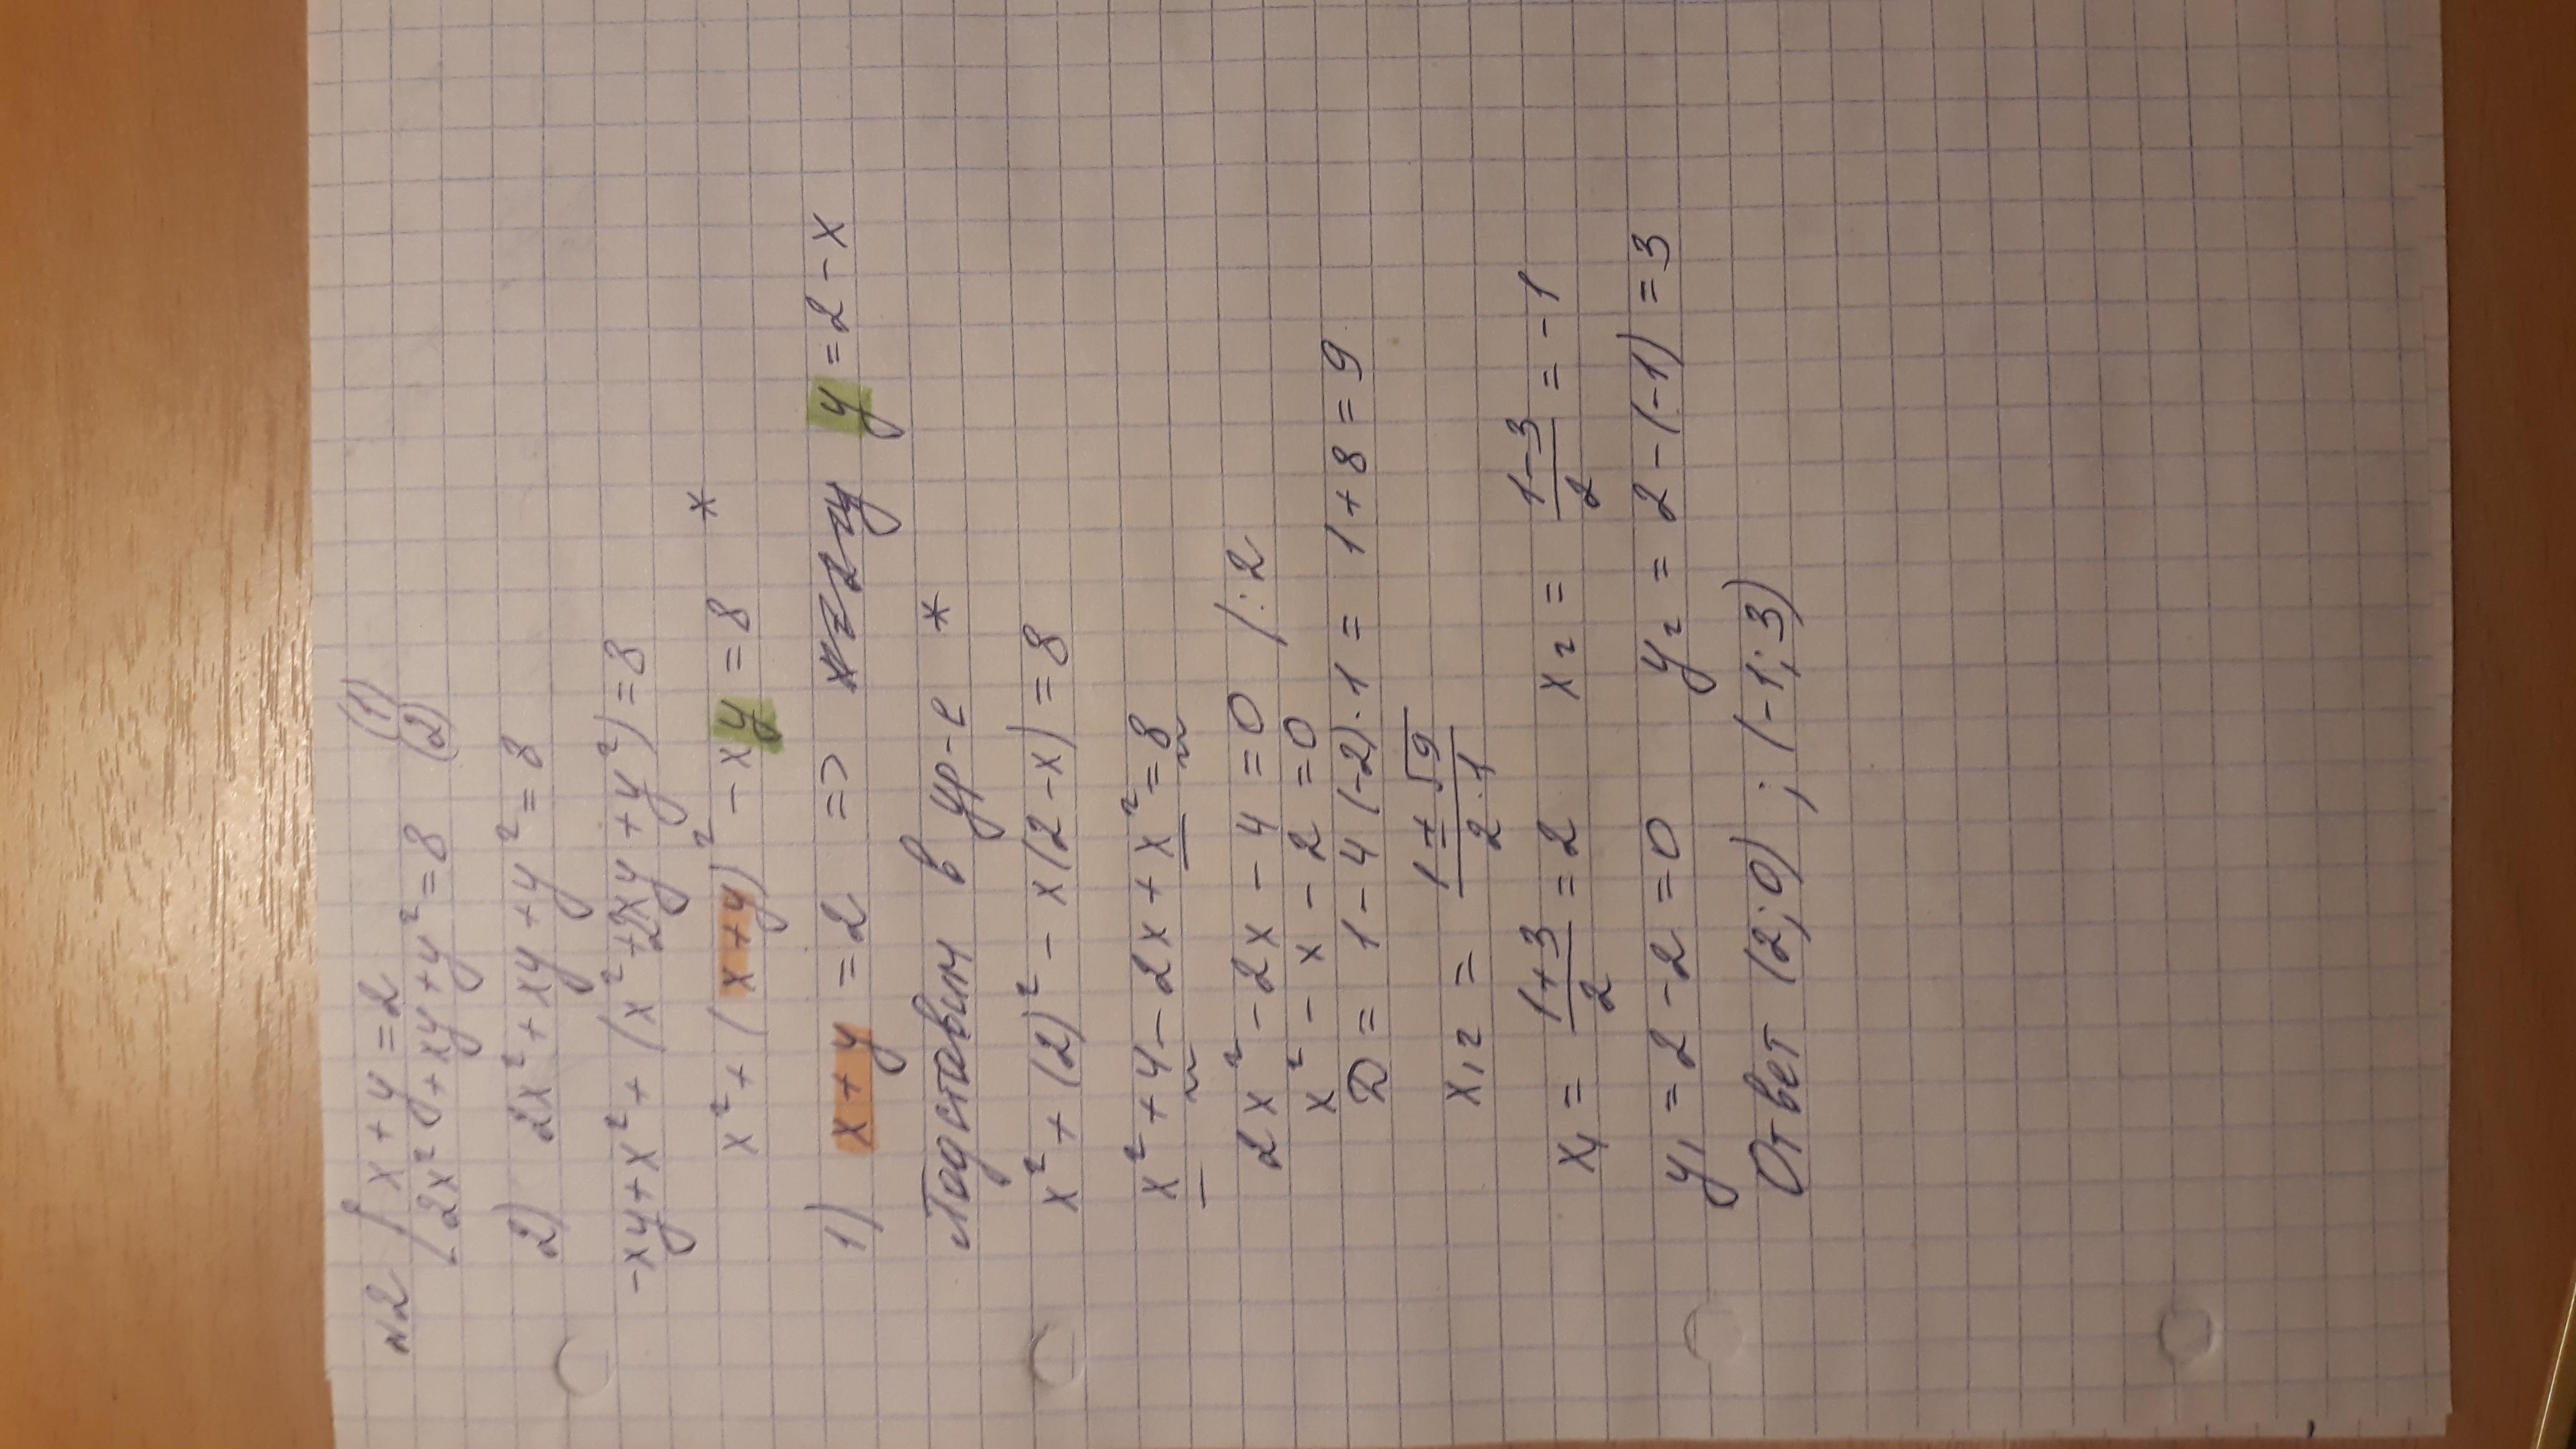 №2 { x + y = 2 (1)
2x² + xy + y² = 8 (2)
2) 2x² + xy + y² = 8
-xy + x² + (x² + 2xy + y²) = 8
x² + (x + y)² - xy = 8 *
1) x + y = 2 => y = 2 - x
Подставим в ур-е *
x² + (2)² - x(2 - x) = 8
x² + 4 - 2x + x² = 8
2x² - 2x - 4 = 0 /:2
x² - x - 2 = 0
D = 1 - 4(-2)·1 = 1 + 8 = 9
x₁₂ = (1 ± √9)/(2·1)
x₁ = (1+3)/2 = 2 x₂ = (1-3)/2 = -1
y₁ = 2 - 2 = 0 y₂ = 2 - (-1) = 3
Ответ (2; 0) ; (-1; 3)